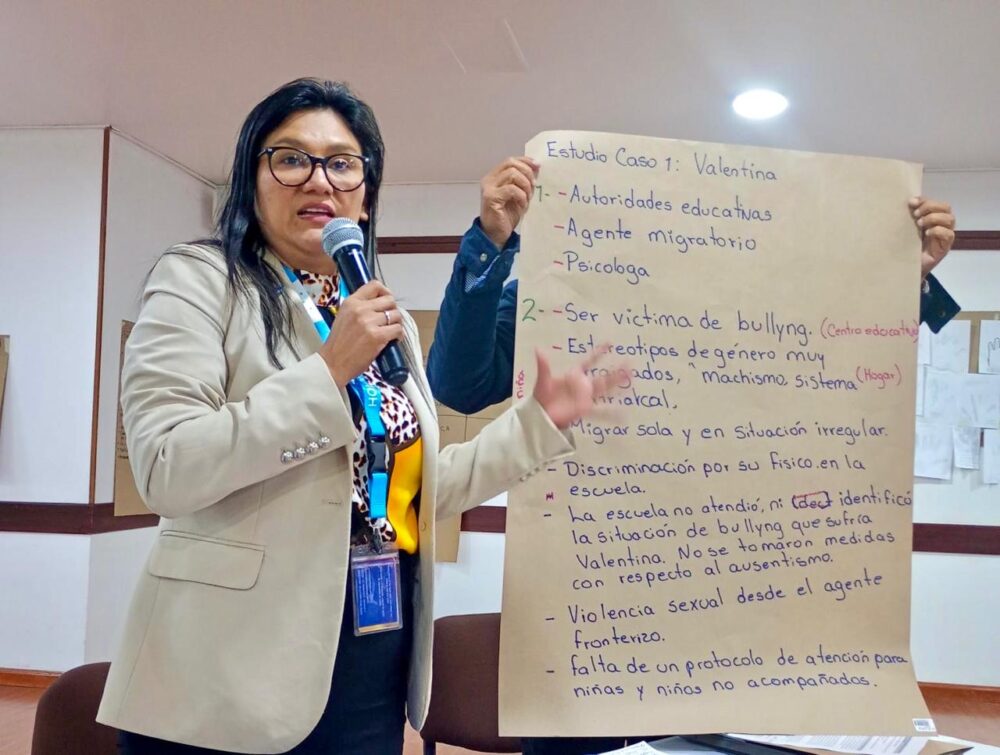 Estudio Caso 1: Valentina
1- - Autoridades educativas
- Agente migratorio
- Psicologa
2- - Ser victima de bullyng. (Centro educativo)
- Estereotipos de género muy
machismo, sistema (Hogar)
niña
Migrar sola y en situación irregular.
- Discriminación por su físico en la
escuela.
- La escuela no atendió, ni identificó
la situación de bullyng que sufría
Valentina. No se tomaron medidas
con respecto al ausentismo.
- Violencia sexual desde el agente
fronterizo.
- falta de un protocolo de atención para
niñas y niños no acompañados.